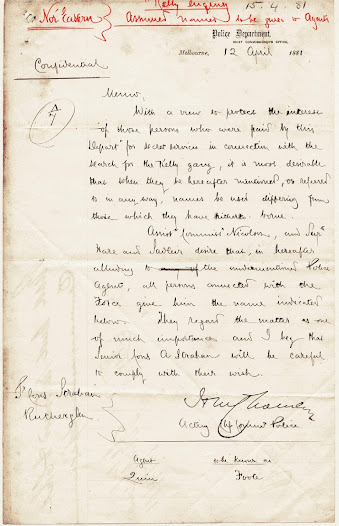 Kelly enquiry 15.4.81
To Nor' Eastern
Assumed names to be given to Agents
Police Department,
CHIEF COMMISSIONER'S OFFICE,
Melbourne, 12 April 1881
Confidential
A/7
Memo.
With a view to protect the interest
of those persons who were paid by this
Depart^t for secret service in connection with the
search for the Kelly gang, it is most desirable
that when they be hereafter mentioned, or referred
to in any way, names be used differing from
those which they have hitherto borne.
Assist^t Commiss^r Nicolson, and Sup^ts
Hare and Sadleir desire that, in hereafter
alluding to the undermentioned Police
Agent, all persons connected with the
Force give him the name indicated
below. They regard the matter as one
of much importance and I beg that
Senior Cons A Strahan will be careful
to comply with their wish.
S^r Cons Strahan
Rutherglen
Acting Ch Commr Police
Agent to be known as
Quin Foote